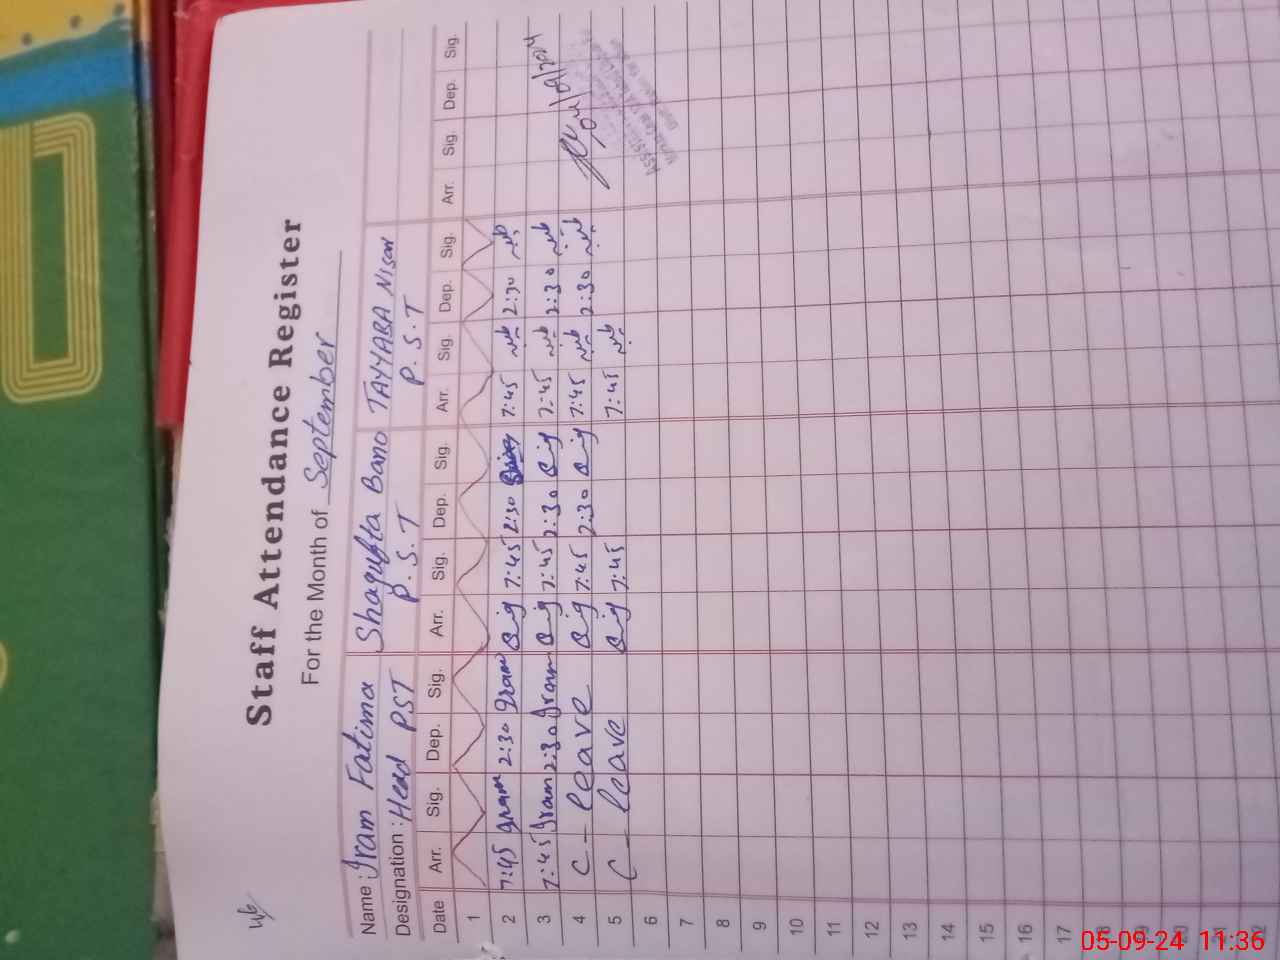 Staff Attendance Register
For the Month of September
Name: Iram Fatima Shagufta Bano TAYYABA Nisar
Designation: Head PST P.S.T P.S.T
Date Arr. Sig. Dep. Sig. Arr. Sig. Dep. Sig. Arr. Sig. Dep. Sig. Arr. Sig. Dep. Sig.
1
2 7:45 Iram 2:30 Iram 7:45 2:30 7:45 2:30
3 7:45 Iram 2:30 Iram 7:45 2:30 7:45 2:30
4 C - leave 7:45 2:30 7:45 2:30
5 C - leave 7:45 7:45
6
7
8
9
10
11
12
13
14
15
16
17
18
19
20
21
22
05-09-24 11:36